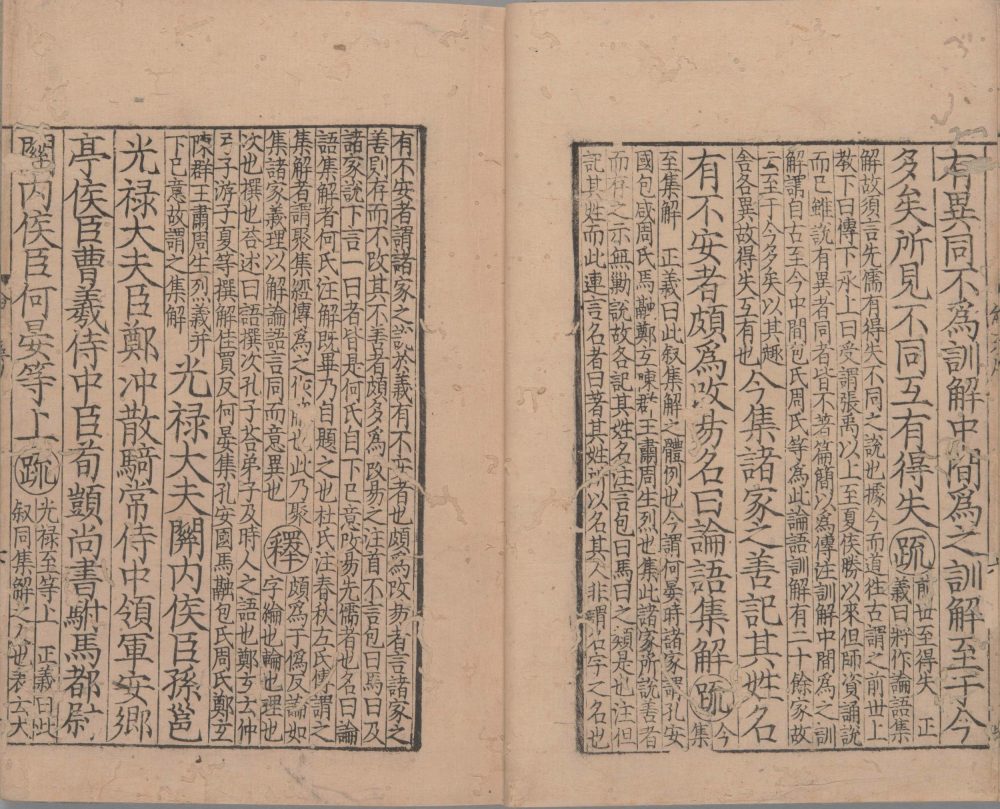 有異同不爲訓解中間爲之訓解至于今
多矣所見不同互有得失疏
前世至得失　正
義曰將作論語集
解故須言先儒有得失不同之說也據今而道往古謂之前世上
教下曰傳下承上曰受謂張禹以上至夏侯勝以來但師資誦說
而已雖說有異者同者皆不著篇簡以爲傳注訓解中間爲之訓
解謂自古至今中間包氏周氏等爲此論語訓解有二十餘家故
云至于今多矣以其趣
舍各異故得失互有也
今集諸家之善記其姓名
有不安者頗爲改易名曰論語集解疏
今
集
至集解　正義曰此叙集解之體例也今謂何晏時諸家謂孔安
國包咸周氏馬融鄭玄陳群王肅周生烈也集此諸家所說善者
而存之示無勦說故各記其姓名注言包曰馬曰之類是也注但
記其姓而此連言名者曰著其姓所以名其人非謂名字之名也
有不安者謂諸家之說於義有不安者也頗爲改易者言諸家之
善則存而不改其不善者頗多爲改易之注首不言包曰馬曰及
諸家說下言一曰者皆是何氏自下已意改易先儒者也名曰論
語集解者何氏注解既畢乃自題之也杜氏注春秋左氏傳謂之
集解者謂聚集經傳爲之作解也此乃聚
集諸家義理以解論語言同而意異也
釋
頗爲于僞反論如
字綸也輪也理也
次也撰也荅述曰語撰次孔子荅弟子及時人之語也鄭玄云仲
弓子游子夏等撰解佳買反何晏集孔安國馬融包氏周氏鄭玄
陳群王肅周生烈義并
下已意故謂之集解
光祿大夫關內侯臣孫邕
光祿大夫臣鄭沖散騎常侍中領軍安鄉
亭侯臣曹羲侍中臣荀顗尚書駙馬都尉
關內侯臣何晏等上疏
光祿至等上　正義曰此
叙同集解之人也表云大